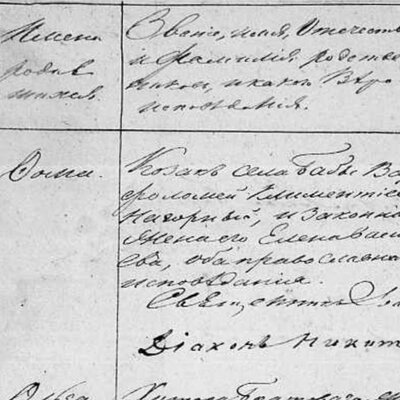 Имена
родив
шихся.
Званіе, имя, Отчество
и фамилія родите
лей, и какого Вѣро
исповѣданія.
Ѳома.
Козакъ села Бабы Вар
ѳоломей Климентіев
Нагорный, и законная
Жена его Елена Васи
ева, оба православна
исповѣданія.
Священникъ
Діаконъ Никит